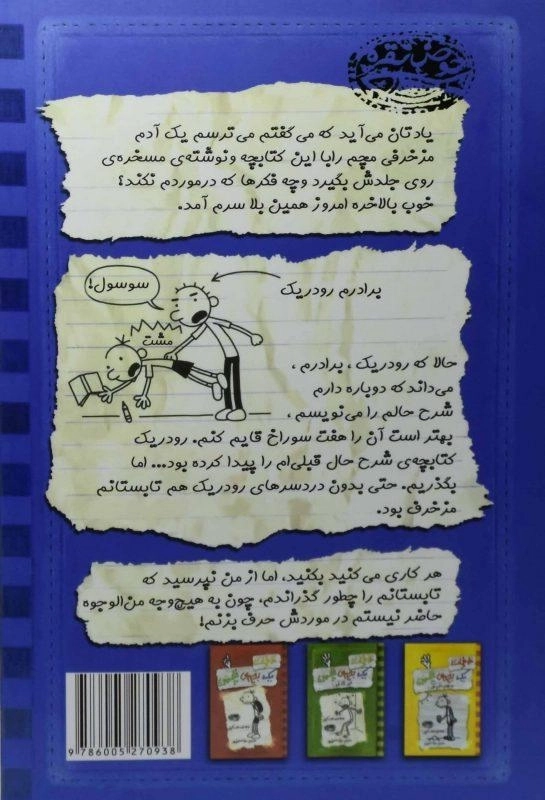 یادتان می‌آید که می‌گفتم می‌ترسم یک آدم
مزخرفی مچم رابا این کتابچه ونوشته‌ی مسخره‌ی
روی جلدش بگیرد وچه فکرها که درموردم نکند؟
خوب بالاخره امروز همین بلا سرم آمد.
برادرم رودریک
سوسول!
مشت
حالا که رودریک ، برادرم ،
می‌داند که دوباره دارم
شرح حالم را می‌نویسم ،
بهتر است آن را هفت سوراخ قایم کنم. رودریک
کتابچه‌ی شرح حال قبلی‌ام را پیدا کرده بود... اما
بگذریم. حتی بدون دردسرهای رودریک هم تابستانم
مزخرف بود.
هر کاری می‌کنید بکنید، اما از من نپرسید که
تابستانم را چطور گذراندم، چون به هیچ‌وجه من‌الوجوه
حاضر نیستم در موردش حرف بزنم!
9 786005 270938